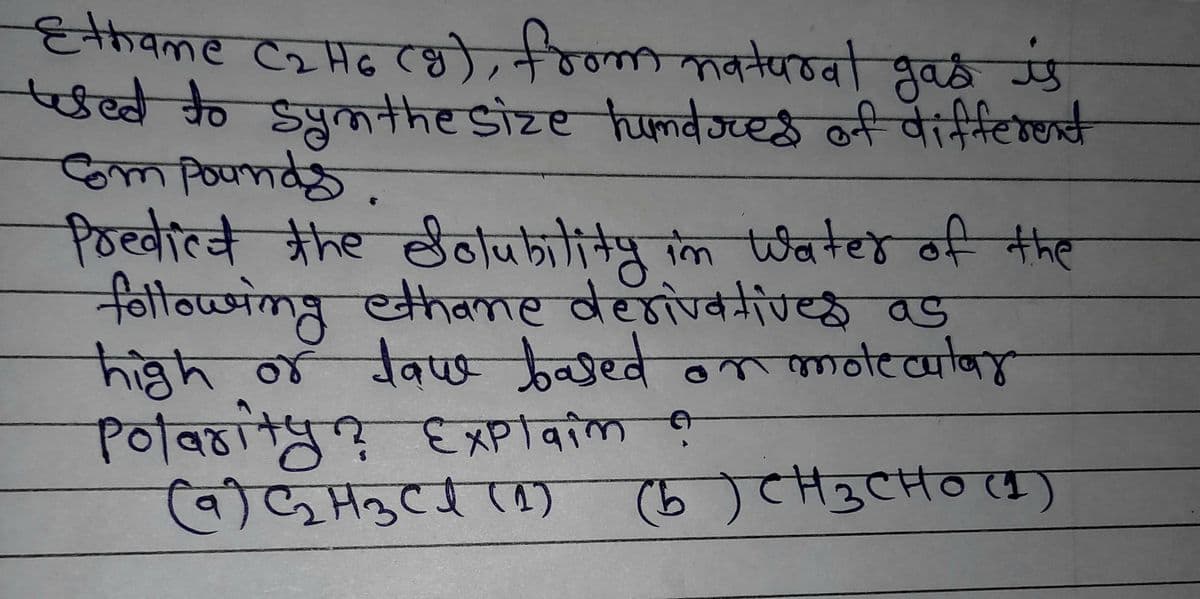 Ethane C2H6 (g), from natural gas is
used to synthesize hundres of different
Compounds.
Predict the Solubility in Water of the
following ethane derivatives as
high or law based on molecular
Polarity? Explain ?
(a) C2H3Cl (1) (b) CH3CHO (1)